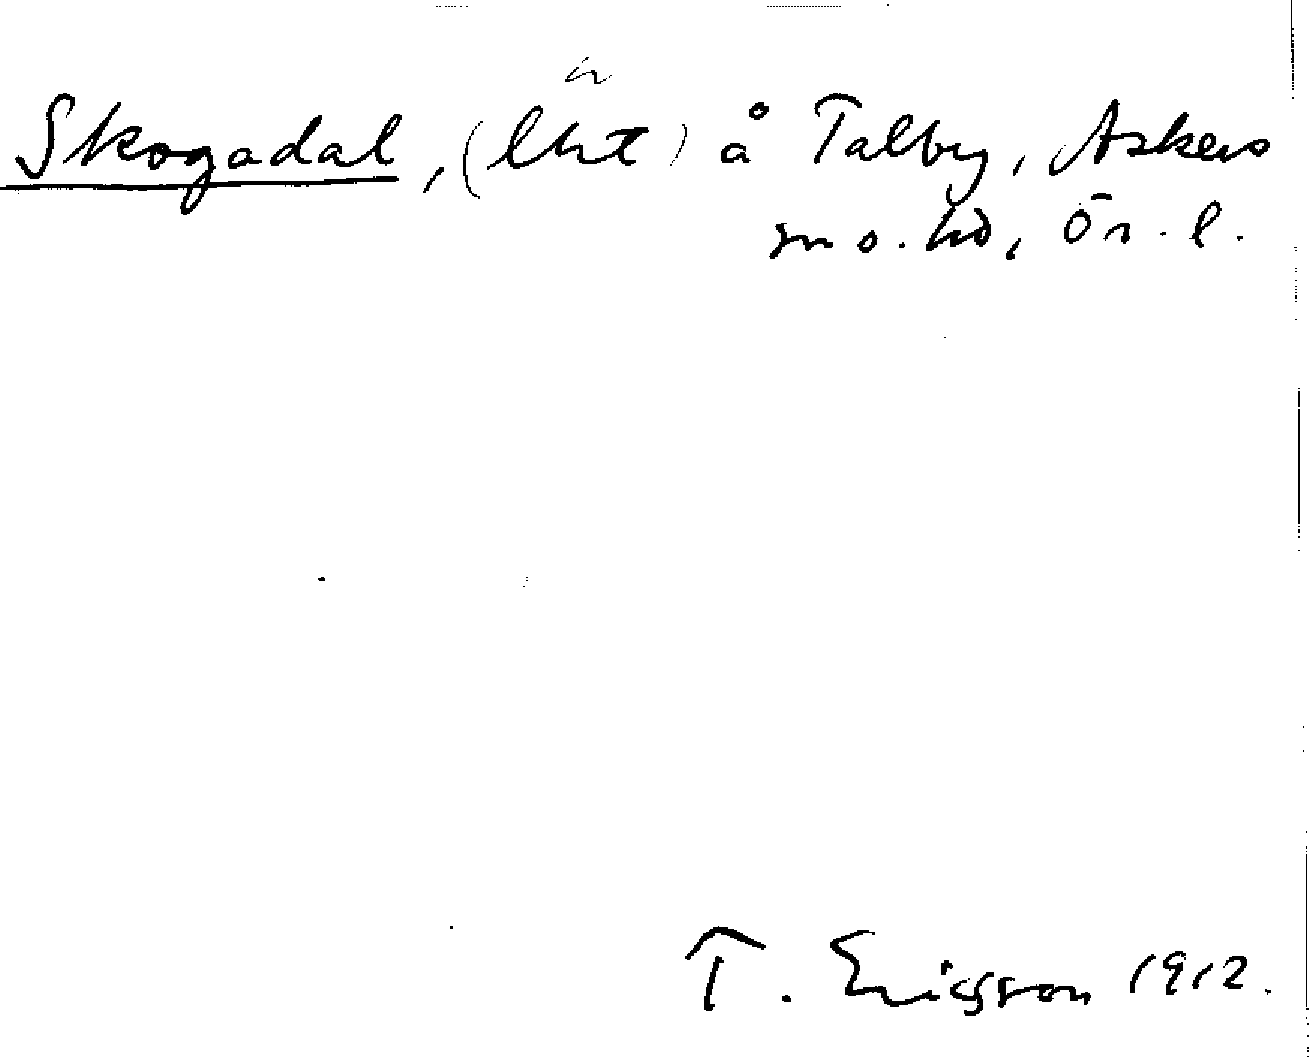 Skogadal, (lht) å Talby, Askers
sn o. hd, Ör. l.
T. Ericsson 1912.